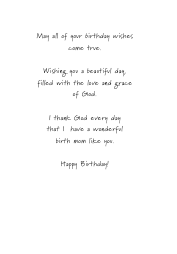 May all of your birthday wishes
come true.
Wishing you a beautiful day,
filled with the love and grace
of God.
I thank God every day
that I have a wonderful
birth mom like you.
Happy Birthday!